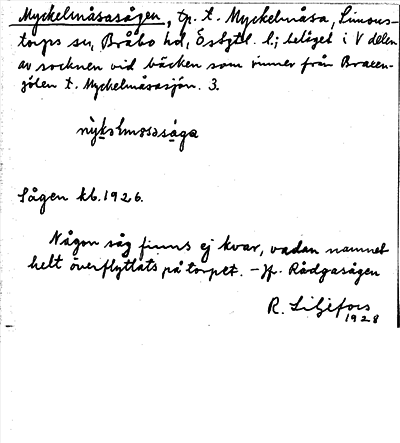 Myckelmåsasågen, tp. t. Myckelmåsa, Simons-
torps sn, Bråbo hd, Östgtl. l.; beläget i V delen
av socknen vid bäcken som rinner från Braxen-
gölen t. Myckelmåsasjön. 3.
nỳkəlmosasåga
Sågen kb. 1926.
Någon såg finns ej kvar, vadan namnet
helt överflyttats på torpet. – Jfr. Rådgasågen
R. Liljefors
1928